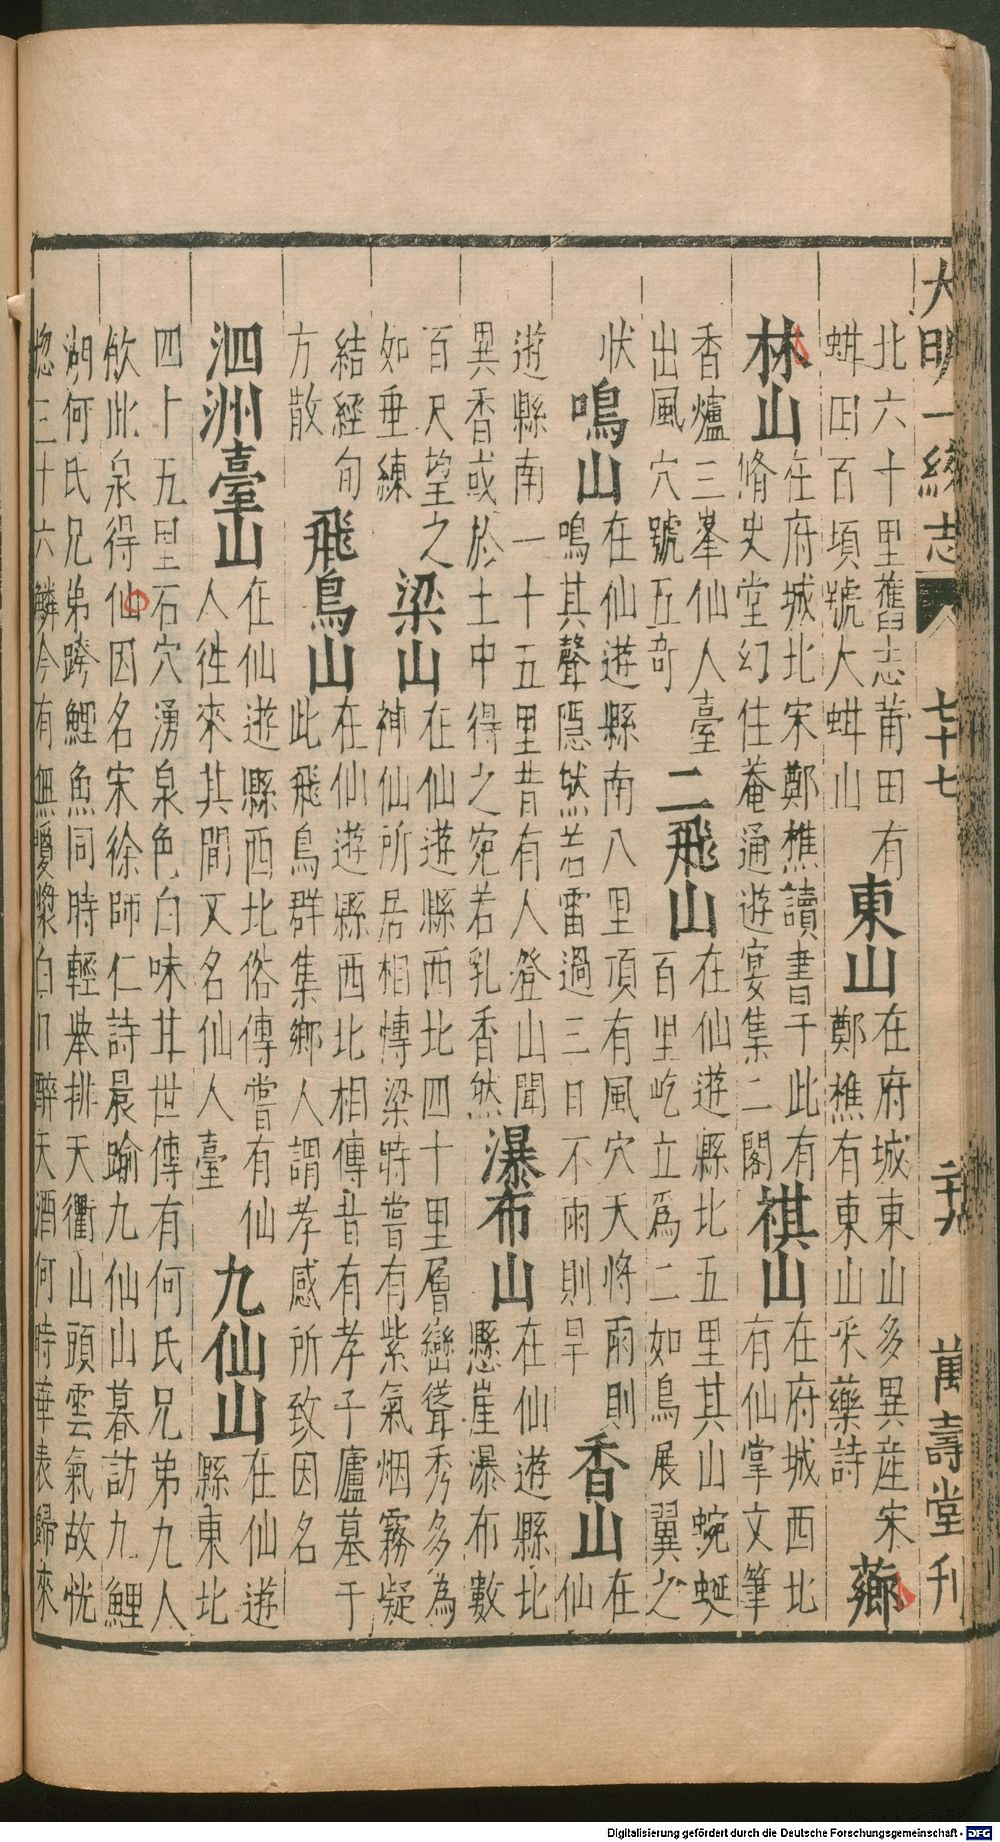 大明一統志 七十七 二十九 萬壽堂刊
北六十里舊志莆田有
蚶田百頃號大蚶山
東山
在府城東山多異産宋
鄭樵有東山采藥詩
薌
林山
在府城北宋鄭樵讀書于此有
脩史堂幻住菴通遊宴集二閣
祺山
在府城西北
有仙掌文筆
香爐三峯仙人臺
出風穴號五奇
二飛山
在仙遊縣北五里其山蜿蜒
百里屹立爲二如鳥展翼之
狀
鳴山
在仙遊縣南八里頂有風穴天將雨則
鳴其聲隱然若雷過三日不雨則旱
香山
在
仙
遊縣南一十五里昔有人登山聞
異香或於土中得之宛若乳香然
瀑布山
在仙遊縣北
懸崖瀑布數
百尺望之
如垂練
梁山
在仙遊縣西北四十里層巒聳秀多為
神仙所居相慱梁時嘗有紫氣烟霧疑
結經旬
方散
飛鳥山
在仙遊縣西北相傳昔有孝子廬墓于
此飛鳥群集鄉人謂孝感所致因名
泗洲臺山
在仙遊縣西北俗傳嘗有仙
人徃來其間又名仙人臺
九仙山
在仙遊
縣東北
四十五里石穴湧泉色白味甘世傳有何氏兄弟九人
飲此泉得仙因名宋徐師仁詩晨踰九仙山暮訪九鯉
湖何氏兄弟跨鯉魚同時輕舉排天衢山頭雲氣故恍
惚三十六鱗今有無瓊漿自口醉天酒何時華表歸來
Digitalisierung gefördert durch die Deutsche Forschungsgemeinschaft - DFG